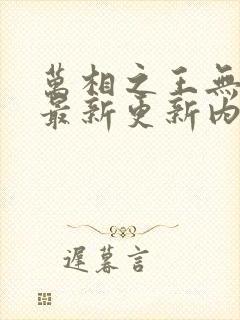 萬相之王無
最新更新內
遲暮言